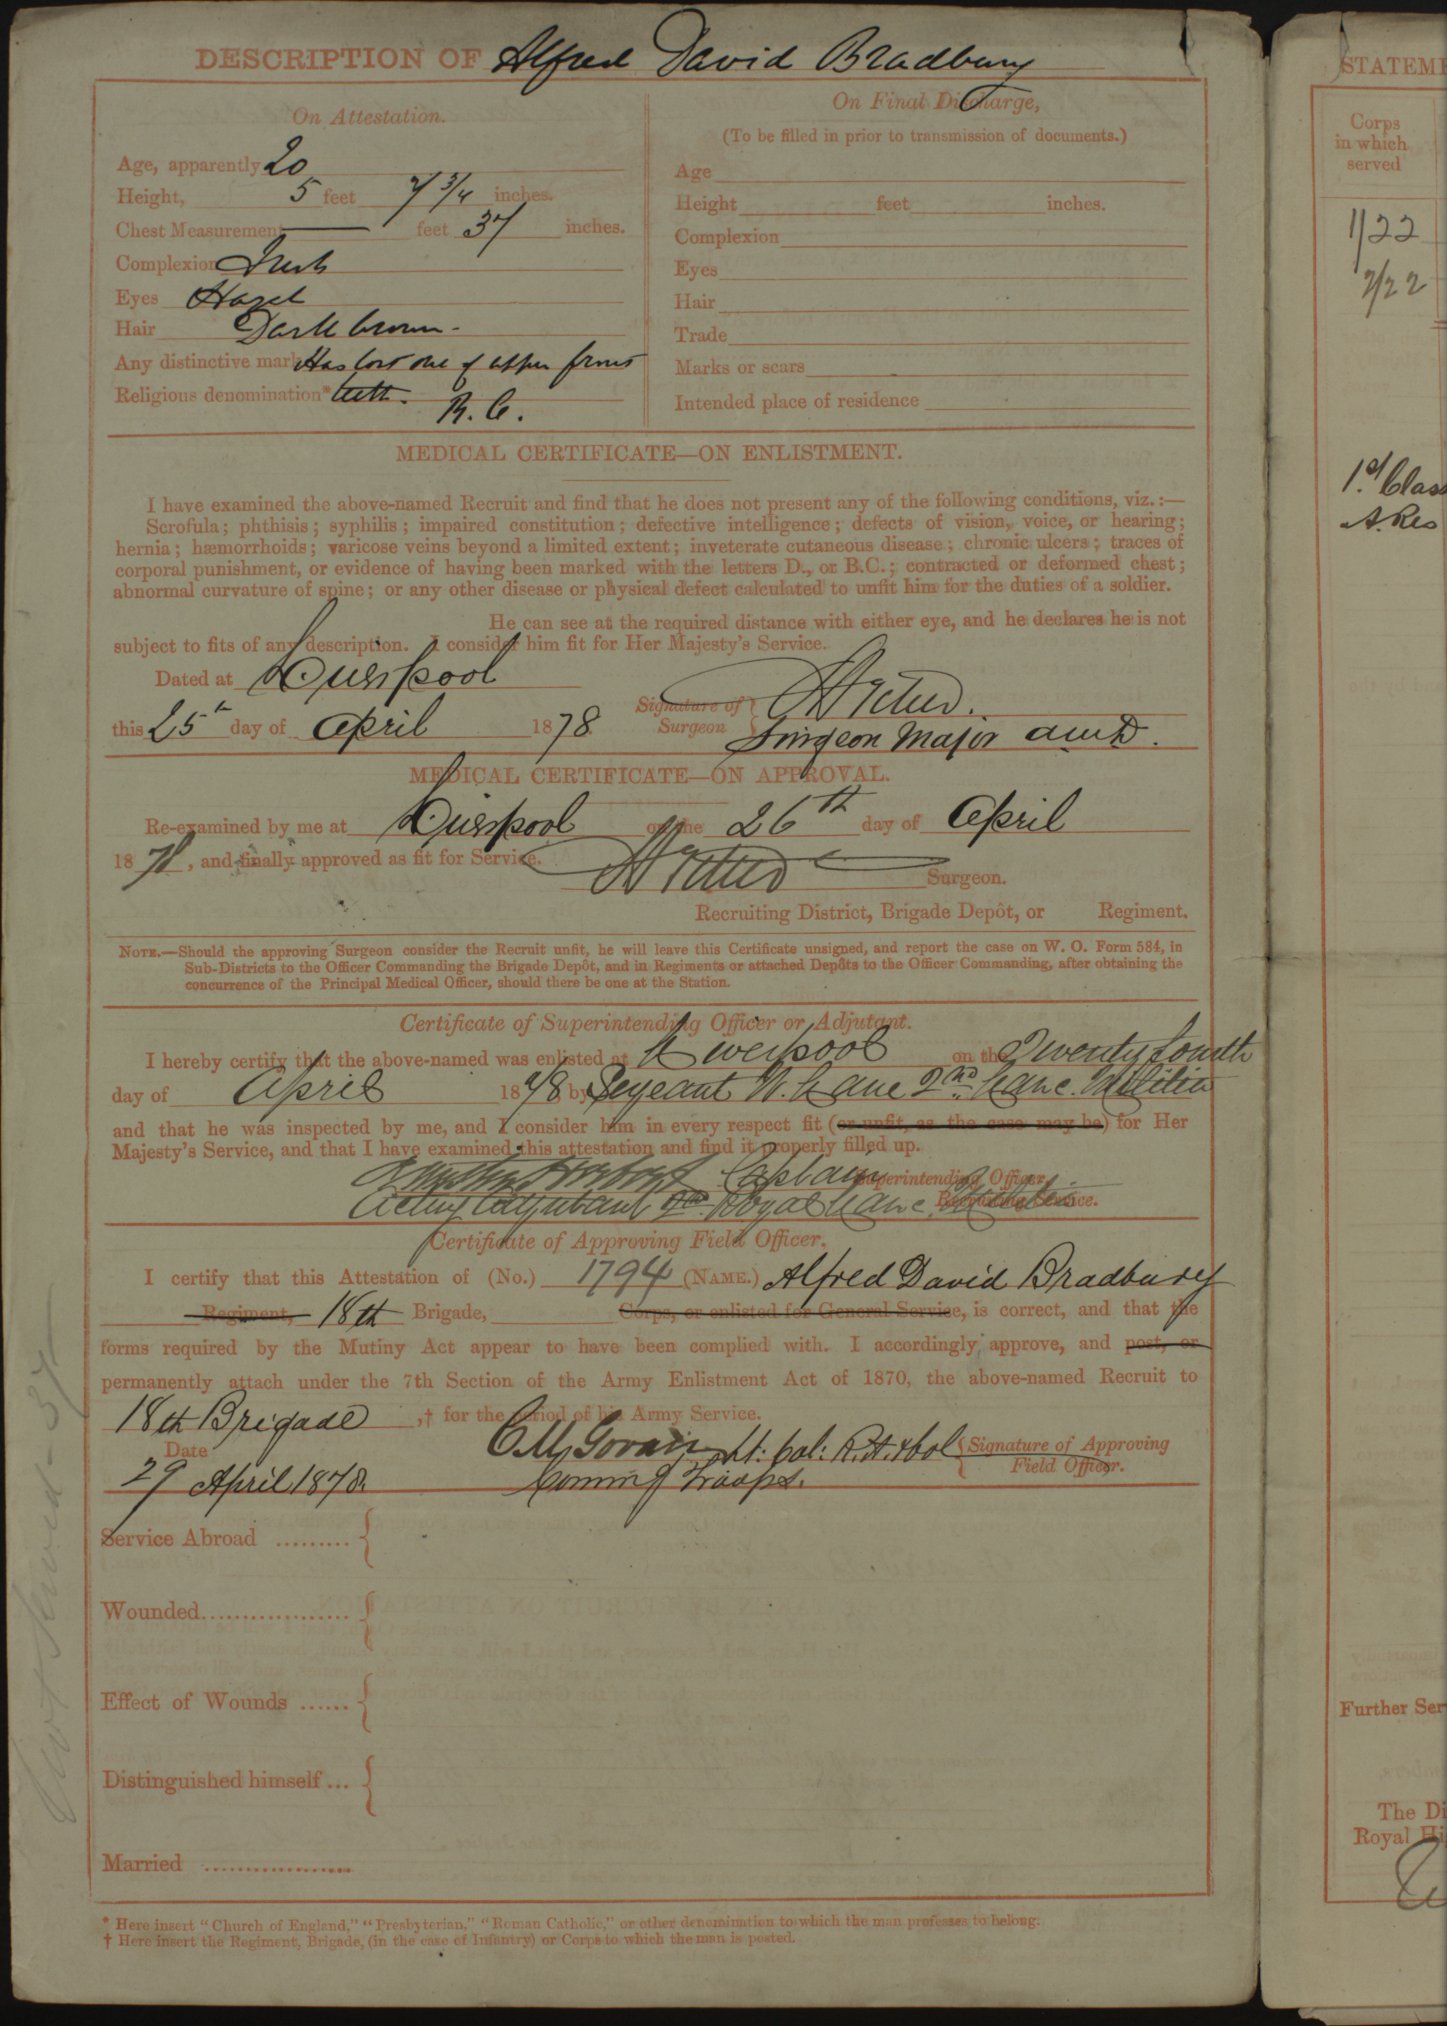 DESCRIPTION OF Alfred David Bradbury
On Attestation.
Age, apparently 20
Height, 5 feet 7 3/4 inches.
Chest Measurement — feet 37 inches.
Complexion Fresh
Eyes Hazel
Hair Dark brown -
Any distinctive mark Has lost one of upper front
Religious denomination* teeth. R. C.
On Final Discharge,
(To be filled in prior to transmission of documents.)
Age
Height feet inches.
Complexion
Eyes
Hair
Trade
Marks or scars
Intended place of residence
MEDICAL CERTIFICATE—ON ENLISTMENT.
I have examined the above-named Recruit and find that he does not present any of the following conditions, viz.:—
Scrofula; phthisis; syphilis; impaired constitution; defective intelligence; defects of vision, voice, or hearing;
hernia; hæmorrhoids; varicose veins beyond a limited extent; inveterate cutaneous disease; chronic ulcers; traces of
corporal punishment, or evidence of having been marked with the letters D., or B.C.; contracted or deformed chest;
abnormal curvature of spine; or any other disease or physical defect calculated to unfit him for the duties of a soldier.
He can see at the required distance with either eye, and he declares he is not
subject to fits of any description. I consider him fit for Her Majesty's Service.
Dated at Liverpool
this 25th day of April 1878
Signature of
Surgeon
Surgeon Major
MEDICAL CERTIFICATE—ON APPROVAL.
Re-examined by me at Liverpool on the 26th day of April
1878, and finally approved as fit for Service.
Surgeon.
Recruiting District, Brigade Depôt, or Regiment.
NOTE.—Should the approving Surgeon consider the Recruit unfit, he will leave this Certificate unsigned, and report the case on W. O. Form 584, in
Sub-Districts to the Officer Commanding the Brigade Depôt, and in Regiments or attached Depôts to the Officer Commanding, after obtaining the
concurrence of the Principal Medical Officer, should there be one at the Station.
Certificate of Superintending Officer or Adjutant.
I hereby certify that the above-named was enlisted at Liverpool on the Twenty fourth
day of April 1878 by Sergeant W. Lane 2nd Lanc. Militia
and that he was inspected by me, and I consider him in every respect fit (or unfit, as the case may be) for Her
Majesty's Service, and that I have examined this attestation and find it properly filled up.
Captain Superintending Officer,
Acting Adjutant 2nd Royal Lanc. Militia Recruiting Service.
Certificate of Approving Field Officer.
I certify that this Attestation of (No.) 1794 (NAME.) Alfred David Bradbury
Regiment, 18th Brigade, Corps, or enlisted for General Service, is correct, and that the
forms required by the Mutiny Act appear to have been complied with. I accordingly approve, and post, or
permanently attach under the 7th Section of the Army Enlistment Act of 1870, the above-named Recruit to
18th Brigade ,† for the period of his Army Service.
Date
29 April 1878.
Lt: Col: R.A. & Col
Comm g Troops.
Signature of Approving
Field Officer.
Service Abroad .........
Wounded..................
Effect of Wounds ......
Distinguished himself ...
Married ..................
* Here insert "Church of England," "Presbyterian," "Roman Catholic," or other denomination to which the man professes to belong.
† Here insert the Regiment, Brigade, (in the case of Infantry) or Corps to which the man is posted.
STATEME
Corps
in which
served
1/22
2/22
1st Class
A. Res
Further Ser
The Di
Royal Hi